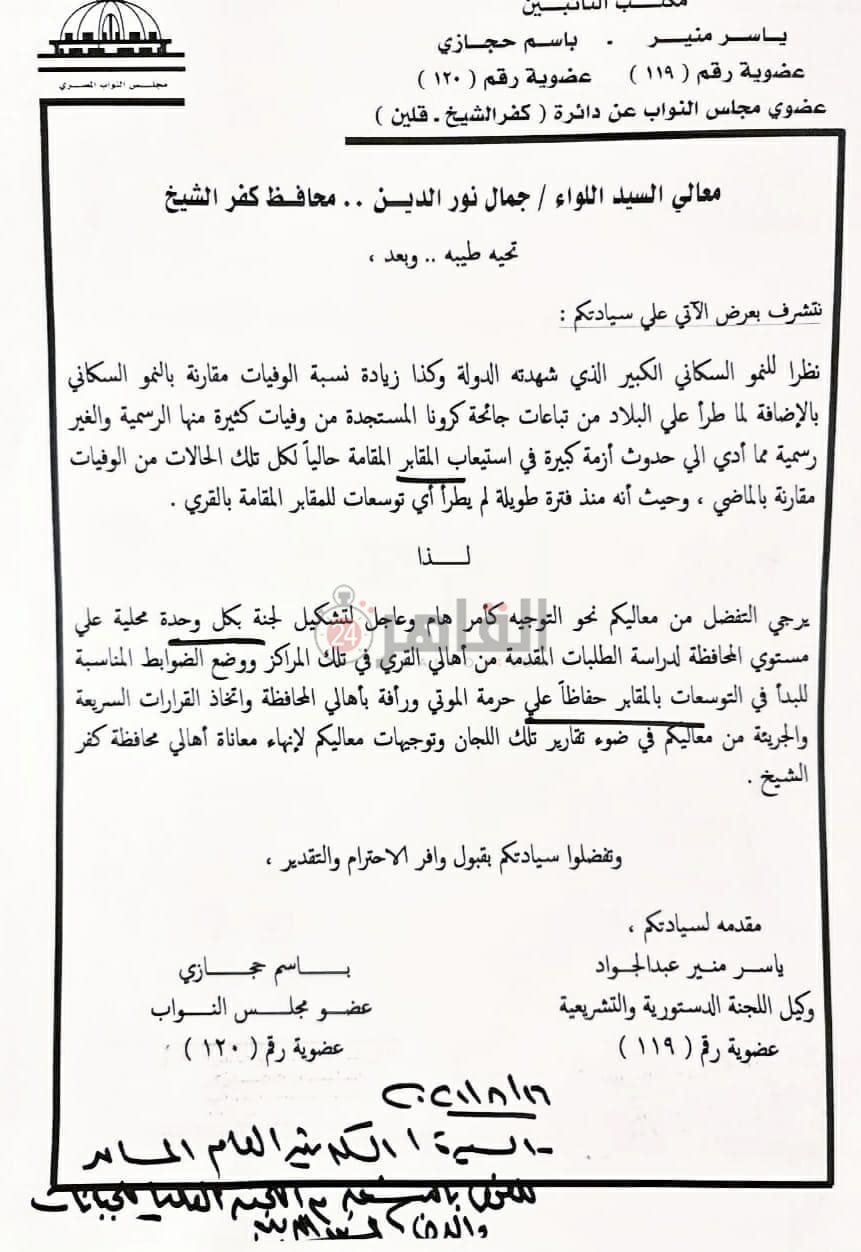 مكتب النائبين
ياسر منير . باسم حجازي
عضوية رقم ( ١١٩ ) عضوية رقم ( ١٢٠ )
عضوي مجلس النواب عن دائرة ( كفرالشيخ ـ قلين )
مجلس النواب المصري
معالي السيد اللواء / جمال نور الدين .. محافظ كفر الشيخ
تحيه طيبه .. وبعد ،
نتشرف بعرض الآتي علي سيادتكم :
نظرا للنمو السكاني الكبير الذي شهدته الدولة وكذا زيادة نسبة الوفيات مقارنة بالنمو السكاني
بالإضافة لما طرأ علي البلاد من تباعات جائحة كرونا المستجدة من وفيات كثيرة منها الرسمية والغير
رسمية مما أدي الي حدوث أزمة كبيرة في استيعاب المقابر المقامة حالياً لكل تلك الحالات من الوفيات
مقارنة بالماضي ، وحيث أنه منذ فترة طويلة لم يطرأ أي توسعات للمقابر المقامة بالقري .
لـــذا
يرجي التفضل من معاليكم نحو التوجيه كأمر هام وعاجل لتشكيل لجنة بكل وحدة محلية علي
مستوي المحافظة لدراسة الطلبات المقدمة من أهالي القري في تلك المراكز ووضع الضوابط المناسبة
للبدأ في التوسعات بالمقابر حفاظاً علي حرمة الموتي ورأفة بأهالي المحافظة واتخاذ القرارات السريعة
والجريئة من معاليكم في ضوء تقارير تلك اللجان وتوجيهات معاليكم لإنهاء معاناة أهالي محافظة كفر
الشيخ .
وتفضلوا سيادتكم بقبول وافر الاحترام والتقدير ،
مقدمه لسيادتكم ،
ياسر منير عبدالجواد باسم حجازي
وكيل اللجنة الدستورية والتشريعية عضو مجلس النواب
عضوية رقم ( ١١٩ ) عضوية رقم ( ١٢٠ )
٢٠٢١/٨/١٦
السكرتير العام المساعد
اللجنة العليا للجبانات
القاهرة 24